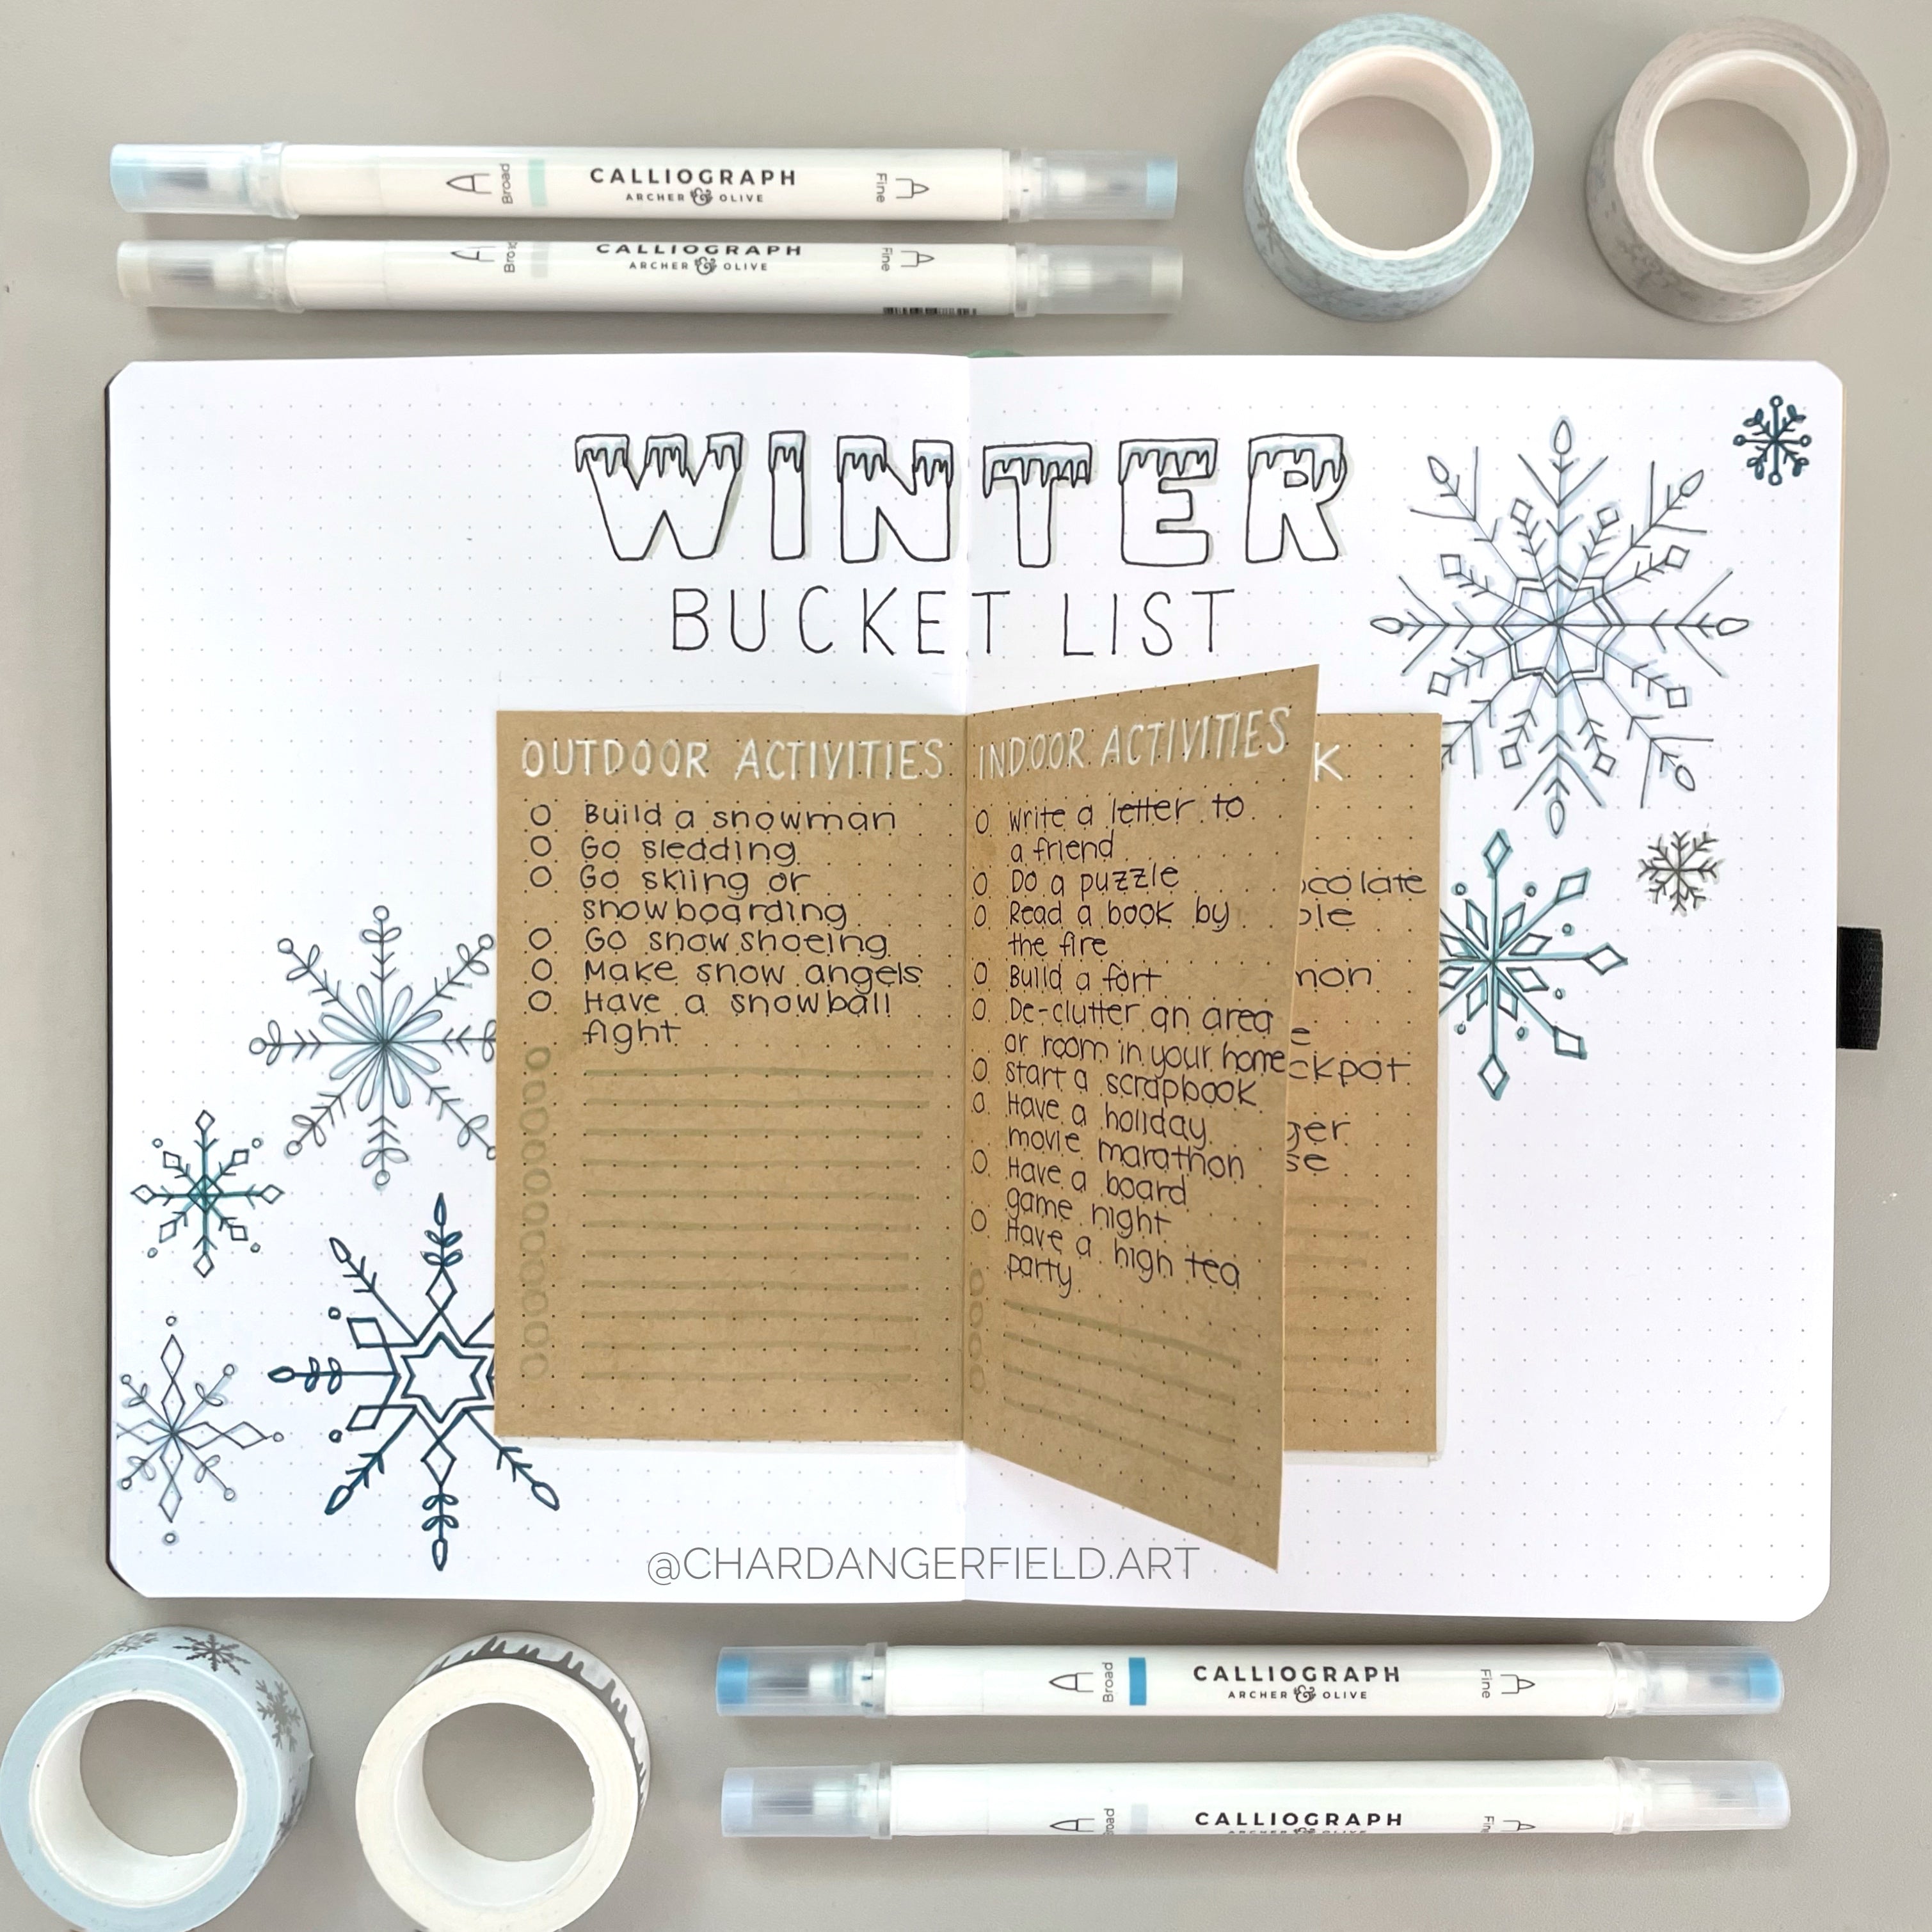 Broad CALLIOGRAPH Fine
ARCHER & OLIVE
CALLIOGRAPH Fine
ARCHER & OLIVE
WINTER
BUCKET LIST
OUTDOOR ACTIVITIES
O Build a snowman
O Go sledding
O Go skiing or
snowboarding
O Go snowshoeing
O Make snow angels
O Have a snowball
fight
INDOOR ACTIVITIES
O Write a letter to
a friend
O Do a puzzle
O Read a book by
the fire
O Build a fort
O De-clutter an area
or room in your home
O Start a scrapbook
O Have a holiday
movie marathon
O Have a board
game night
O Have a high tea
party
@CHARDANGERFIELD.ART
Broad CALLIOGRAPH Fine
ARCHER & OLIVE
CALLIOGRAPH